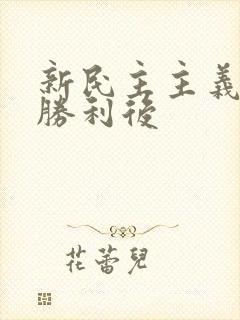 新民主主義
勝利後
花蕾兒